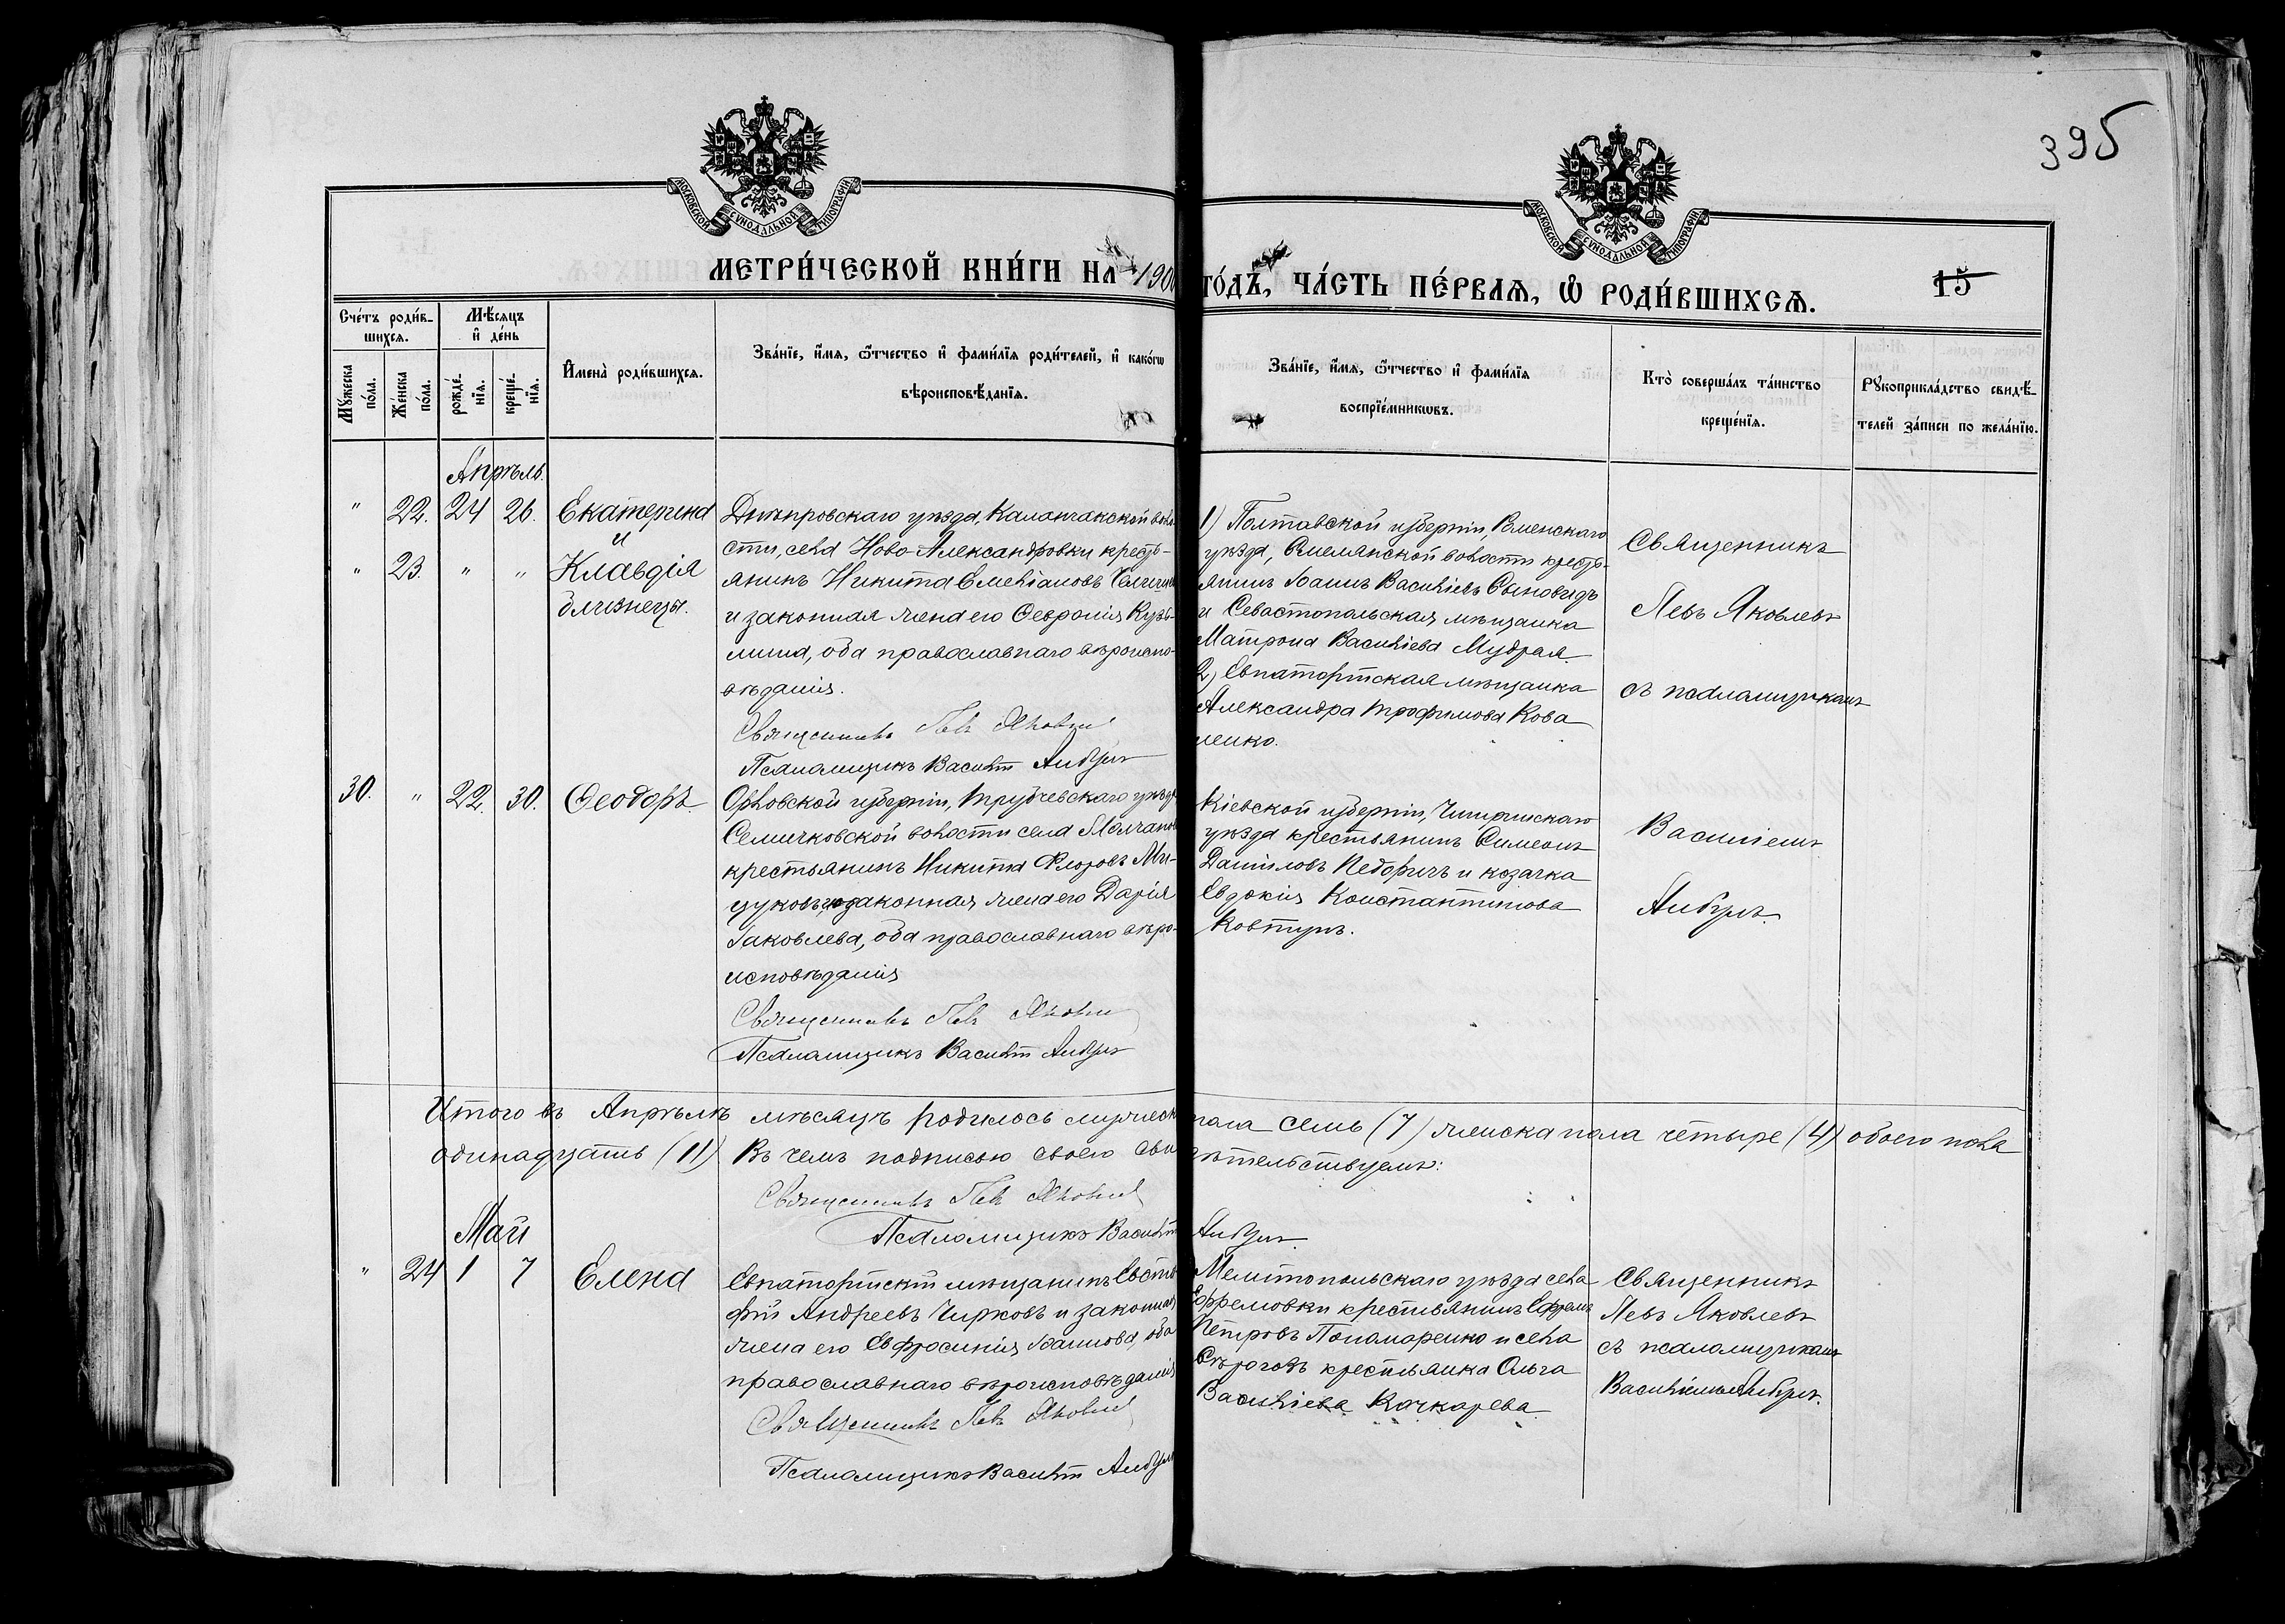 395
МОСКОВСКОЙ СѴНОДАЛЬНОЙ ТИПОГРАФІИ
МОСКОВСКОЙ СѴНОДАЛЬНОЙ ТИПОГРАФІИ
МЕТРИ́ЧЕСКОЙ КНИ́ГИ НА 190
ГО́ДЪ, ЧА́СТЬ ПЕ́РВАѦ, Ѽ РОДИ́ВШИХСѦ.
15
Сче́тъ роди́в-
шихся.
Мѣ́сяцъ
и҆ де́нь
Мꙋ́жеска
по́ла.
Же́нска
по́ла.
рожде́-
нїѧ.
креще́-
нїѧ.
И҆мена̀ роди́вшихсѧ.
Зва́нїе, и҆́мѧ, ѻ҆́тчество и҆ фами́лїѧ роди́телей, и҆ како́гѡ
вѣроисповѣ́данїѧ.
Зва́нїе, и҆́мѧ, ѻ҆́тчество и҆ фами́лїѧ
воспрїе́мникѡвъ.
Кто̀ соверша́лъ та́инство
креще́нїѧ.
Рꙋкоприкла́дство свидѣ́-
телей за́писи по жела́нїю.
Апрѣль.
" 22. 24 26. Екатерина
и
" 23. " " Клавдія
близнецы.
Днѣпровскаго уѣзда, Каланчакской воло
сти, села Ново-Александровки кресть-
янинъ Никита Емеліановъ
и законная жена его Февронія Кузь-
мина, оба православнаго вѣроиспо-
вѣданія.
Священникъ Левъ Яковлевъ
Псаломщикъ Василій
1) Полтавской губерніи, Роменскаго
уѣзда, Смелянской волости кресть-
янинъ Іоаннъ Василіевъ Сыновидъ
и Севастопольская мѣщанка
Матрона Василіева Мудрая.
2) Евпаторійская мѣщанка
Александра Трофимова Кова
ленко.
Священникъ
Левъ Яковлевъ
съ псаломщикомъ
30. " 22. 30. Ѳеодоръ
Орловской губерніи, Трубчевскаго уѣзда
Семячковской волости села Молчанов
крестьянинъ Никита Флоровъ Ми-
цуковъ и законная жена его Дарія
Іаковлева, оба православнаго вѣро-
исповѣданія
Священникъ Левъ Яковлевъ
Псаломщикъ Василій
Кіевской губерніи, Чигиринскаго
уѣзда крестьянинъ Симеонъ
Даніиловъ Недоричъ и козачка
Евдокія Константинова
Ковтунъ.
Василіемъ
Итого въ Апрѣлѣ мѣсяцѣ родилось мужеск пола семь (7) женска пола четыре (4) обоего пола
одинадцать (11) Въ чемъ подписью своею свидѣтельствуемъ:
Священникъ Левъ Яковлевъ
Псаломщикъ Василій
Май
" 24 1 7 Елена
Евпаторійскій мѣщанинъ Евста
фій Андреевъ Чирковъ и законная
жена его Евфросинія Іоаннова, оба
православнаго вѣроисповѣданія
Священникъ Левъ Яковлевъ
Псаломщикъ Василій
Мелитопольскаго уѣзда села
Ефремовки крестьянинъ Ефремъ
Петровъ Пономаренко и села
Сѣрогозъ крестьянка Ольга
Василіева Качкарева.
Священникъ
Левъ Яковлевъ
съ псаломщикомъ
Василіемъ